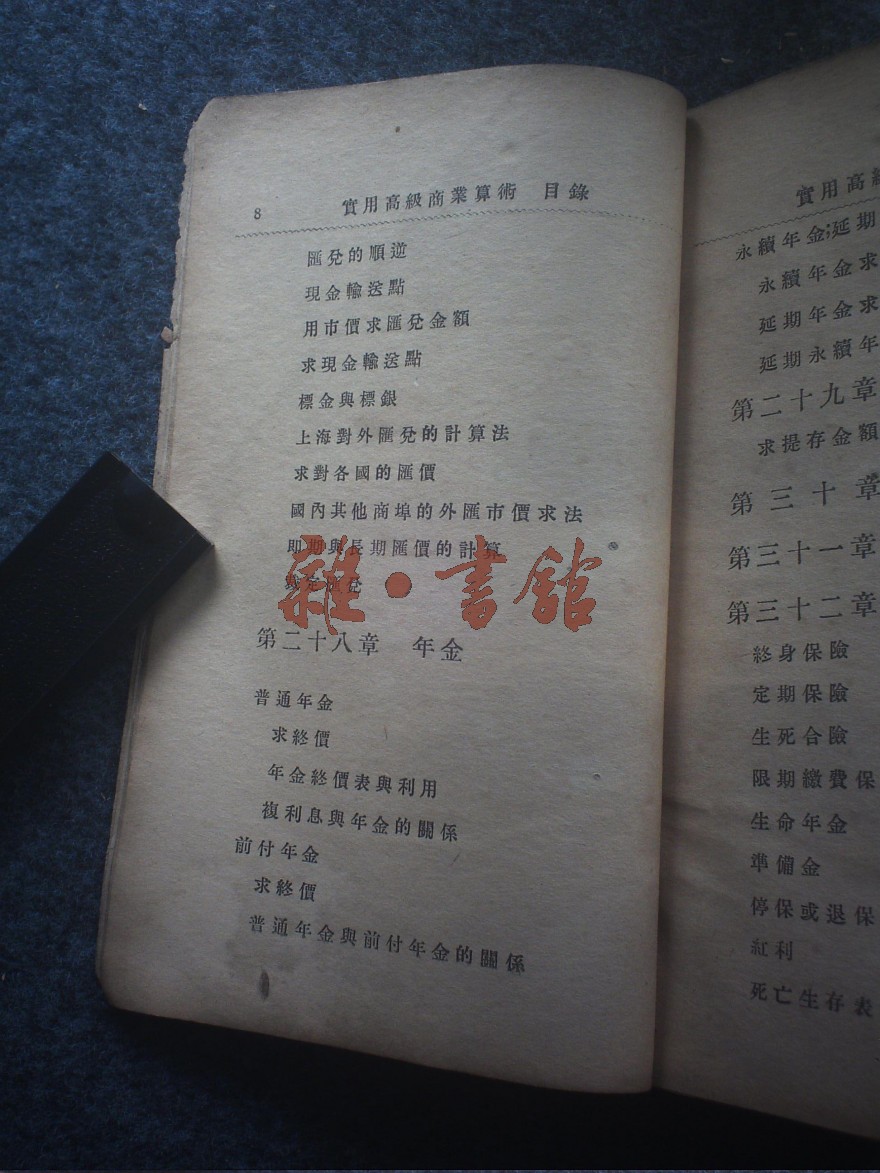 8 實用高級商業算術 目錄
匯兌的順逆
現金輸送點
用市價求匯兌金額
求現金輸送點
標金與標銀
上海對外匯兌的計算法
求對各國的匯價
國內其他商埠的外匯市價求法
即期與長期匯價的計算
裁定匯兌
雜·書館
第二十八章 年金
普通年金
求終價
年金終價表與利用
複利息與年金的關係
前付年金
求終價
普通年金與前付年金的關係
實用高級
永續年金;延期
永續年金求
延期年金求
延期永續年
第二十九章
求提存金額
第三十章
第三十一章
第三十二章
終身保險
定期保險
生死合險
限期繳費保
生命年金
準備金
停保或退保
紅利
死亡生存表